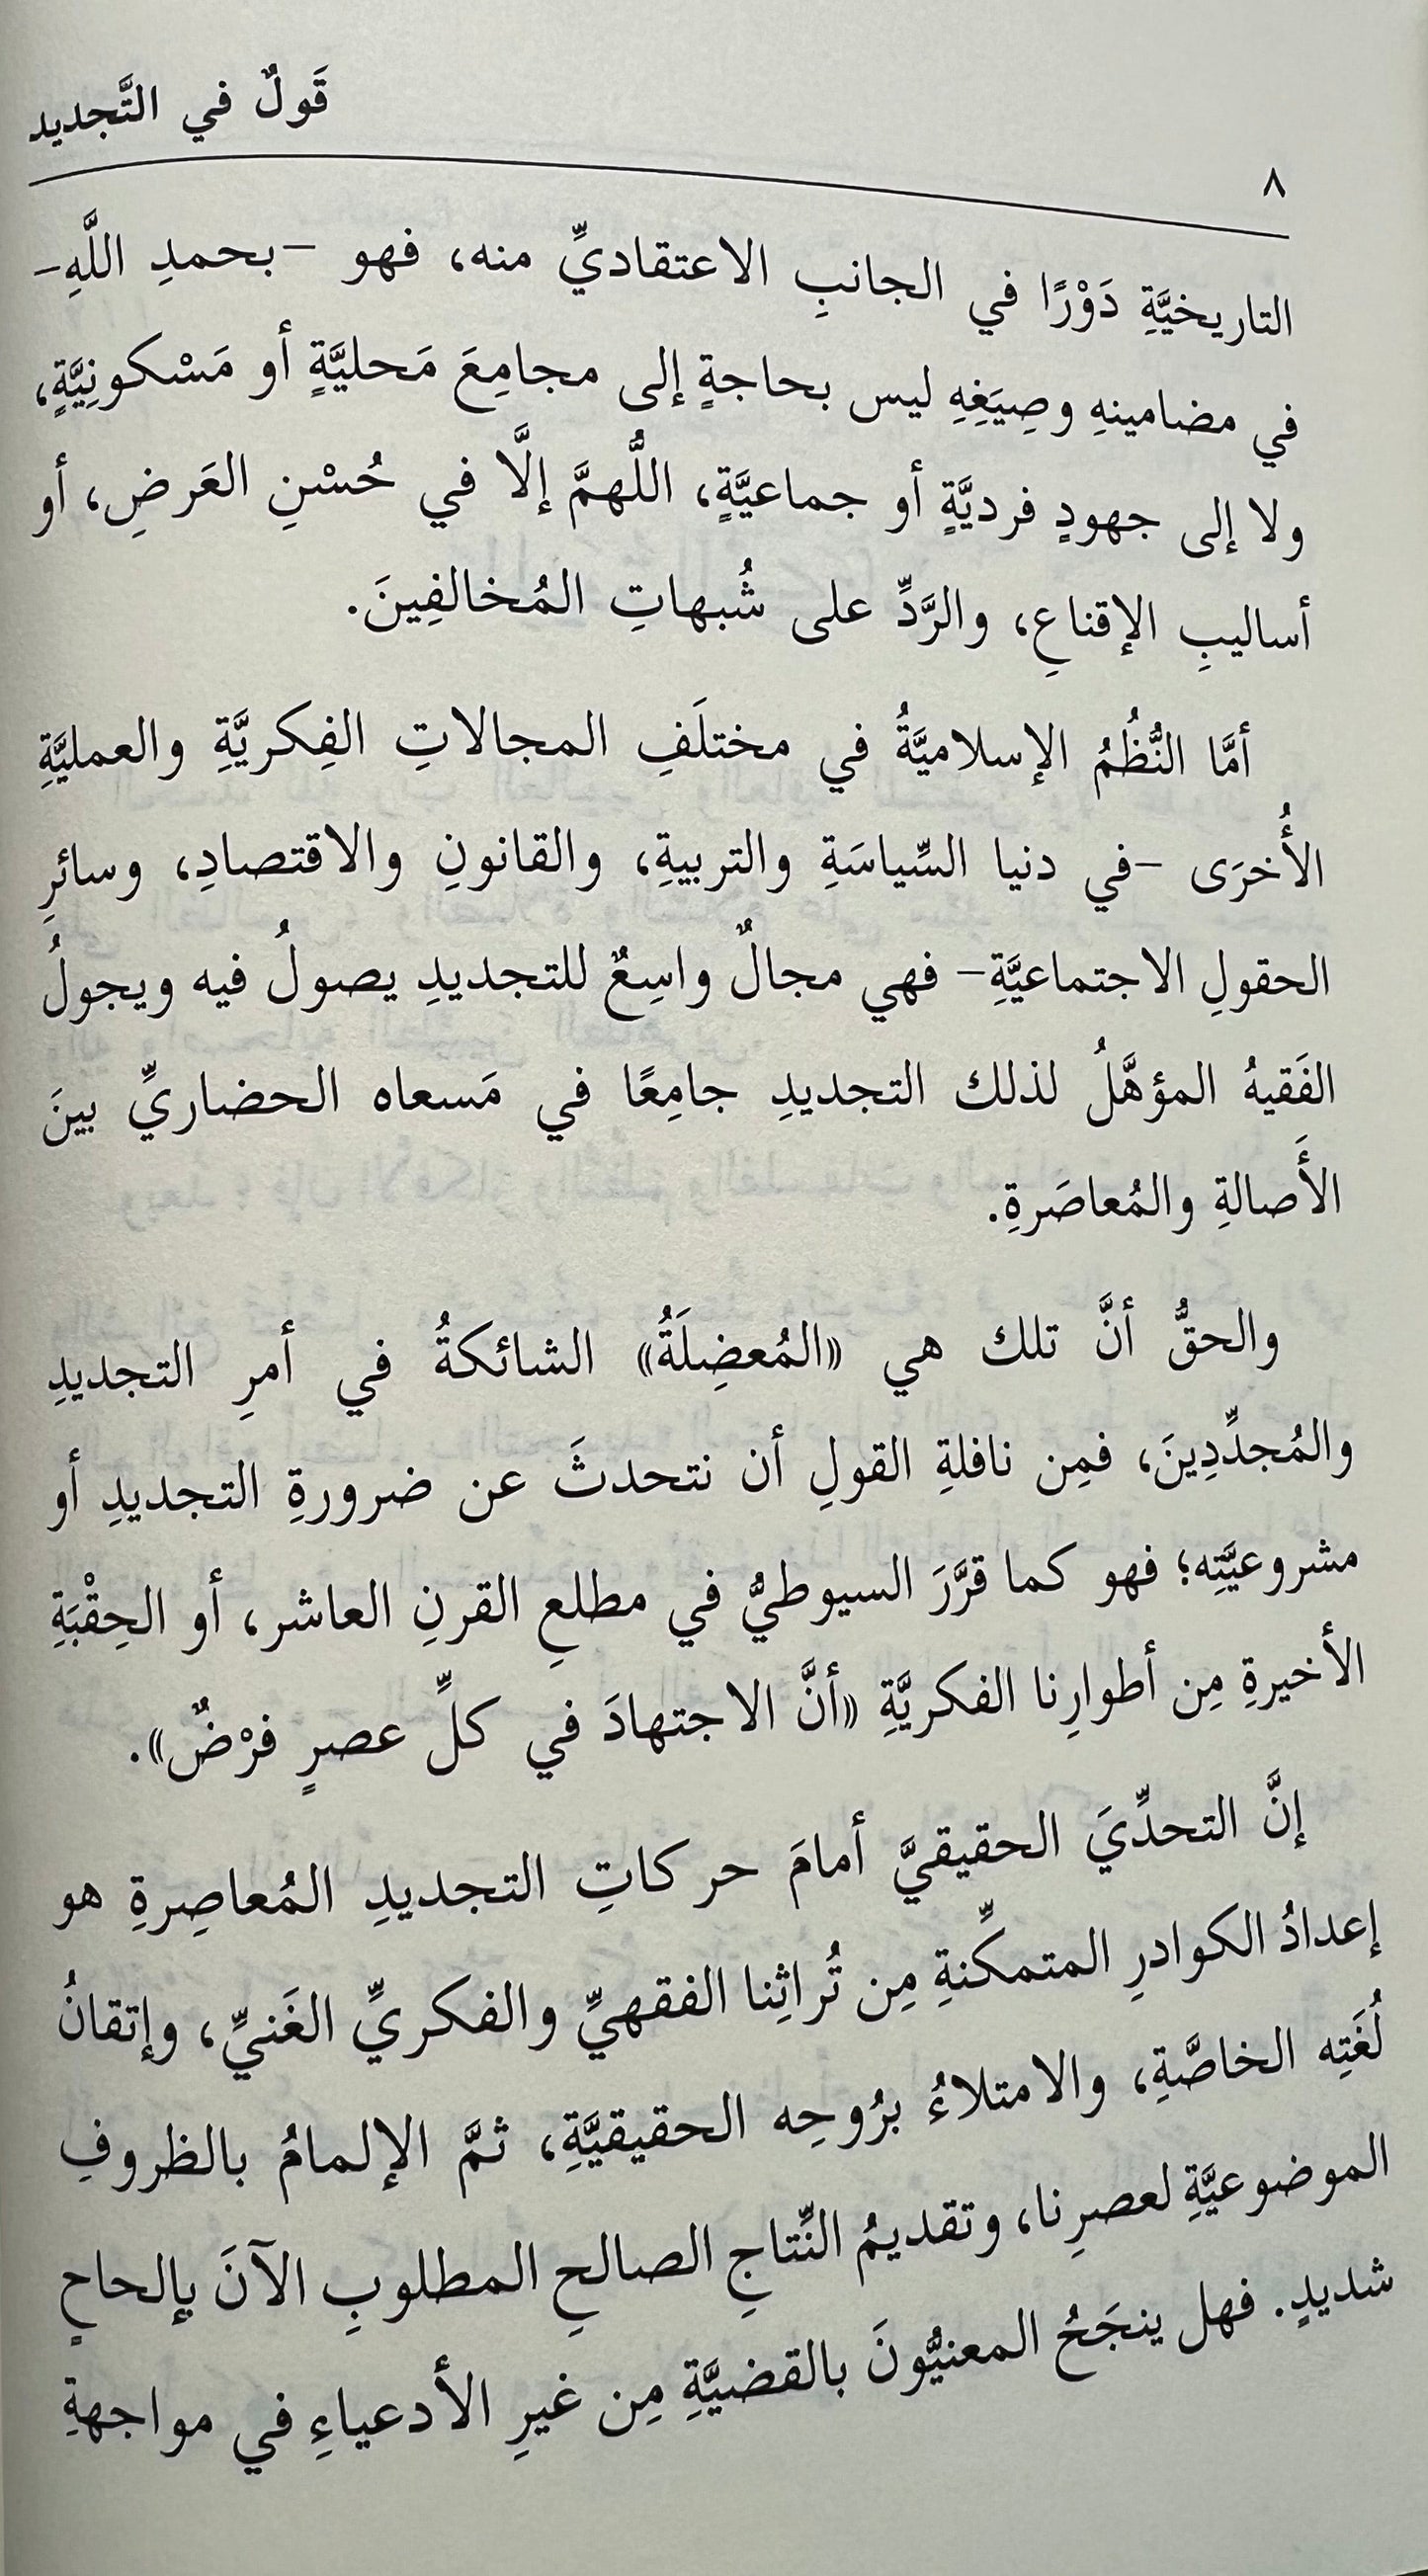 قَولٌ في التَّجديد
٨
التاريخيَّةِ دَوْرًا في الجانبِ الاعتقاديِّ منه، فهو –بحمدِ اللَّهِ–
في مضامينهِ وصِيَغِهِ ليس بحاجةٍ إلى مجامِعَ مَحليَّةٍ أو مَسْكونِيَّةٍ،
ولا إلى جهودٍ فرديَّةٍ أو جماعيَّةٍ، اللَّهمَّ إلَّا في حُسْنِ العَرضِ، أو
أساليبِ الإقناعِ، والرَّدِّ على شُبهاتِ المُخالفِينَ.
أمَّا النُّظُمُ الإسلاميَّةُ في مختلَفِ المجالاتِ الفِكريَّةِ والعمليَّةِ
الأُخرَى –في دنيا السِّياسَةِ والتربيةِ، والقانونِ والاقتصادِ، وسائرِ
الحقولِ الاجتماعيَّةِ– فهي مجالٌ واسِعٌ للتجديدِ يصولُ فيه ويجولُ
الفَقيهُ المؤهَّلُ لذلك التجديدِ جامِعًا في مَسعاه الحضاريِّ بينَ
الأَصالةِ والمُعاصَرةِ.
والحقُّ أنَّ تلك هي «المُعضِلَةُ» الشائكةُ في أمرِ التجديدِ
والمُجدِّدِينَ، فمِن نافلةِ القولِ أن نتحدثَ عن ضرورةِ التجديدِ أو
مشروعيَّتِه؛ فهو كما قرَّرَ السيوطيُّ في مطلعِ القرنِ العاشر، أو الحِقْبَةِ
الأخيرةِ مِن أطوارِنا الفكريَّةِ «أنَّ الاجتهادَ في كلِّ عصرٍ فرْضٌ».
إنَّ التحدِّيَ الحقيقيَّ أمامَ حركاتِ التجديدِ المُعاصِرةِ هو
إعدادُ الكوادرِ المتمكِّنةِ مِن تُراثِنا الفقهيِّ والفكريِّ الغَنيِّ، وإتقانُ
لُغَتِه الخاصَّةِ، والامتلاءُ برُوحِه الحقيقيَّةِ، ثمَّ الإلمامُ بالظروفِ
الموضوعيَّةِ لعصرِنا، وتقديمُ النِّتاجِ الصالحِ المطلوبِ الآنَ بإلحاحٍ
شديدٍ. فهل ينجَحُ المعنيُّونَ بالقضيَّةِ مِن غيرِ الأدعياءِ في مواجهةِ